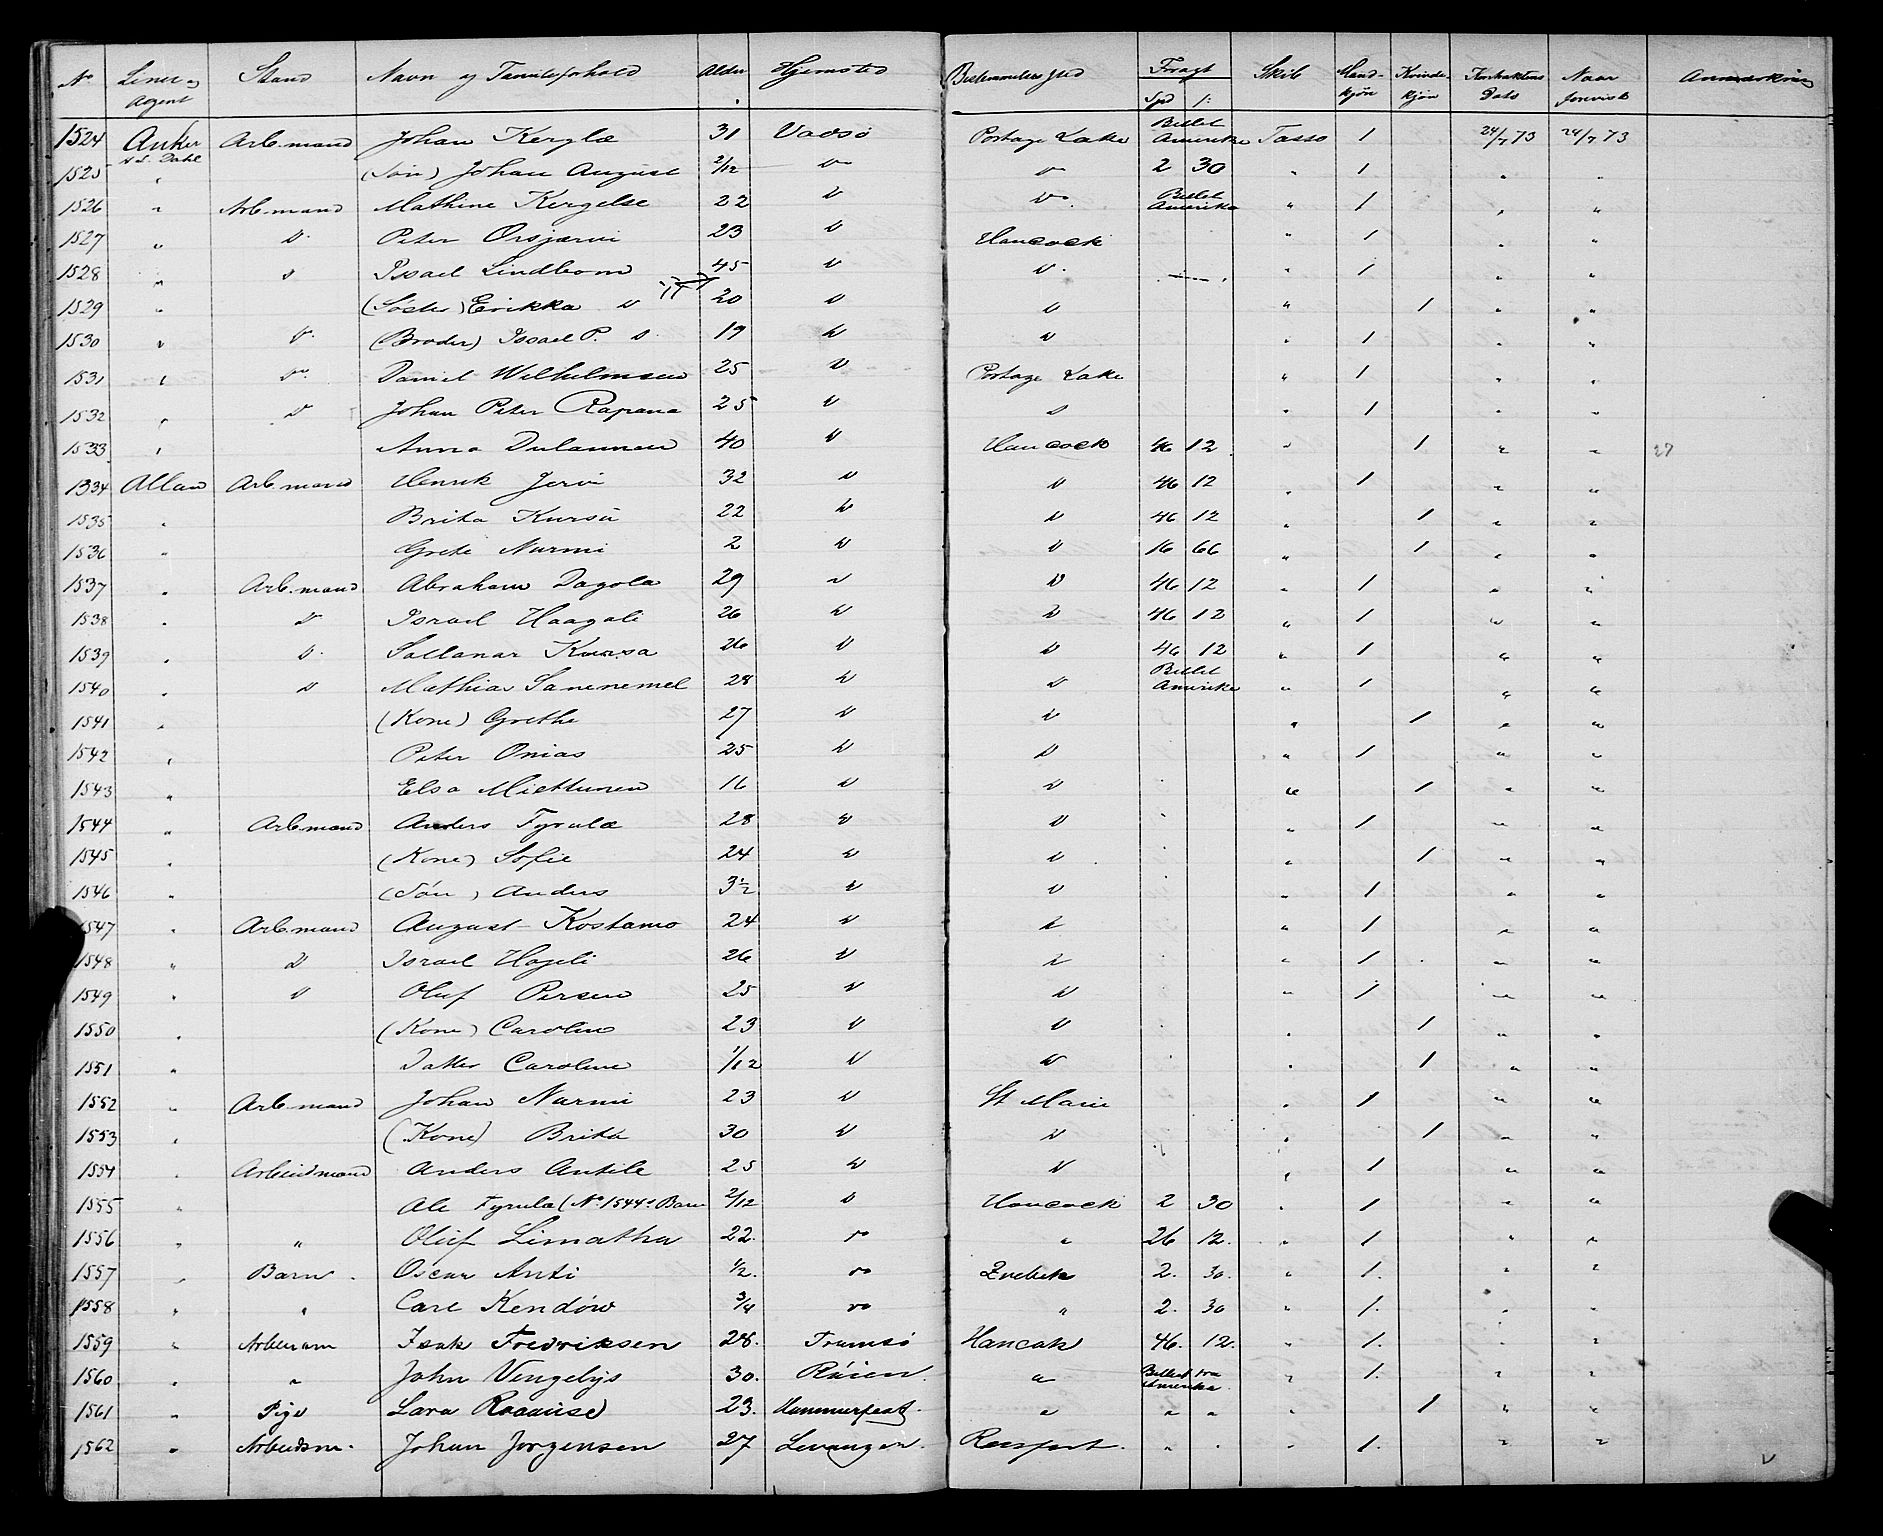 No Liner og Agent Stand Navn og Familieforhold Alder Hjemsted Bestemmelsessted Fragt Spd ß: Skib Mandkjøn Kvindekjøn Kontraktens Dato Naar forevist Anmærkning
1524 Anker Arb.mand Johan Kerglæ 31 Vadsø Portage Lake Billet Amerika Tasso 1 24/7 73 24/7 73
1525 " (Søn) Johan August 2/12 do do 2 30 " 1 " "
1526 " Arb.mand Mathine Kergelse 22 do do Billet Amerika " 1 " "
1527 " do Peter Orsjærvi 23 do Hancock " 1 " "
1528 " do Isael Lindbom 45 do do " 1 " "
1529 " (Søster) Erikka do 20 do do " 1 " "
1530 " do (Broder) Isael P. do 19 do do " 1 " "
1531 " do Daniel Wilhelmsen 25 do Portage Lake " 1 " "
1532 " do Johan Peter Rapana 25 do do " 1 " "
1533 " Anna Dulannen 40 do Hancock 46 12 " 1 " " 27
1534 Allan Arb.mand Henrik Jervi 32 do do 46 12 " 1 " "
1535 " Brita Kursu 22 do do 46 12 " 1 " "
1536 " Grete Nurmi 2 do do 16 66 " 1 " "
1537 " Arb.mand Abraham Dagola 29 do do 46 12 " 1 " "
1538 " do Israel Haagali 26 do do 46 12 " 1 " "
1539 " do Sallanar Kursa 26 do do 46 12 " 1 " "
1540 " do Mathias Sanenemel 28 do do Billet Amerika " 1 " "
1541 " (Kone) Grethe 27 do do " 1 " "
1542 " Peter Onias 25 do do " 1 " "
1543 " Elsa Miettunen 16 do do " 1 " "
1544 " Arb.mand Anders Fyrulæ 28 do do " 1 " "
1545 " (Kone) Sofie 24 do do " 1 " "
1546 " (Søn) Anders 3½ do do " 1 " "
1547 " Arb.mand August Kostamo 24 do do " 1 " "
1548 " do Israel Hageli 26 do do " 1 " "
1549 " do Oluf Persen 25 do do " 1 " "
1550 " (Kone) Caroline 23 do do " 1 " "
1551 " Datter Caroline 1/12 do do " 1 " "
1552 " Arb.mand Johan Nurmi 23 do St Marie " 1 " "
1553 " (Kone) Brita 30 do do " 1 " "
1554 " Arbeidmand Anders Antile 25 do do " 1 " "
1555 " Ale Fyrulæ (No 1544s Barn 2/12 do Hancock 2 30 " 1 " "
1556 " " Oluf Limatha 22. do " 26 12. " 1 " "
1557 " Barn. Oscar Anti ½. do Qvebek 2. 30. " 1. " "
1558 " " Carl Kendøw ¾ do " 2. 30 " 1. " "
1559 " Isak Fredriksen 28. Tromsø Hancok 46. 12. " 1. " "
1560 " " John Vengebys 30. " Billet fra Amerika. " 1. " "
1561 " Pige Lara 23. Hammerfest. " " " " 1 " "
1562 " Arbeidsm. Johan Jørgensen 27 Levanger. " " " 1. " "